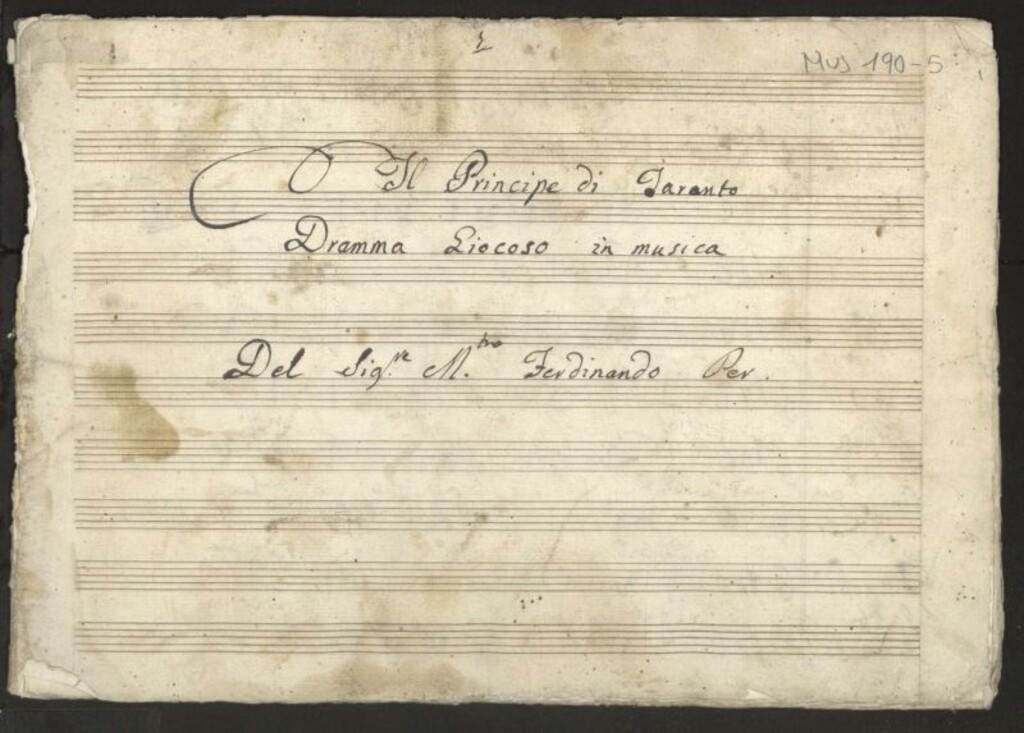 Mus 190-5
Il Principe di Taranto
Dramma Giocoso in musica
Del Sig.re M.tro Ferdinando Per.